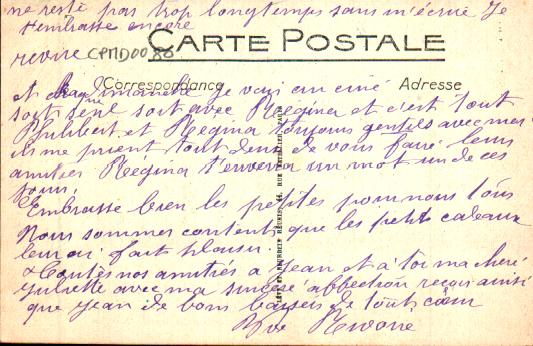 ne reste pas trop longtemps sans m'écrire Je
t'embrasse encore
revire CPMD0086
CARTE POSTALE
Correspondance
Adresse
et chaque dimanche je vais au ciné
soit seul soit avec Regina et c'est tout
Philibert et Regina toujours gentils avec moi
ils me prient tout deux de vous faire leurs
amitiés Régina t'enverra un mot un de ces
jours
Embrasse bien les petites pour nous tous
Nous sommes contents que les petits cadeaux
leur ai fait plaisir.
toutes nos amitiés a Jean et à toi ma chère
Juliette avec ma sincère affection reçois ainsi
que Jean de bons baisers de tout cœur